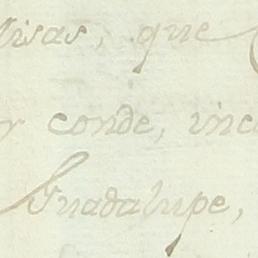 Misas, que
y conde, inc
Guadalupe,